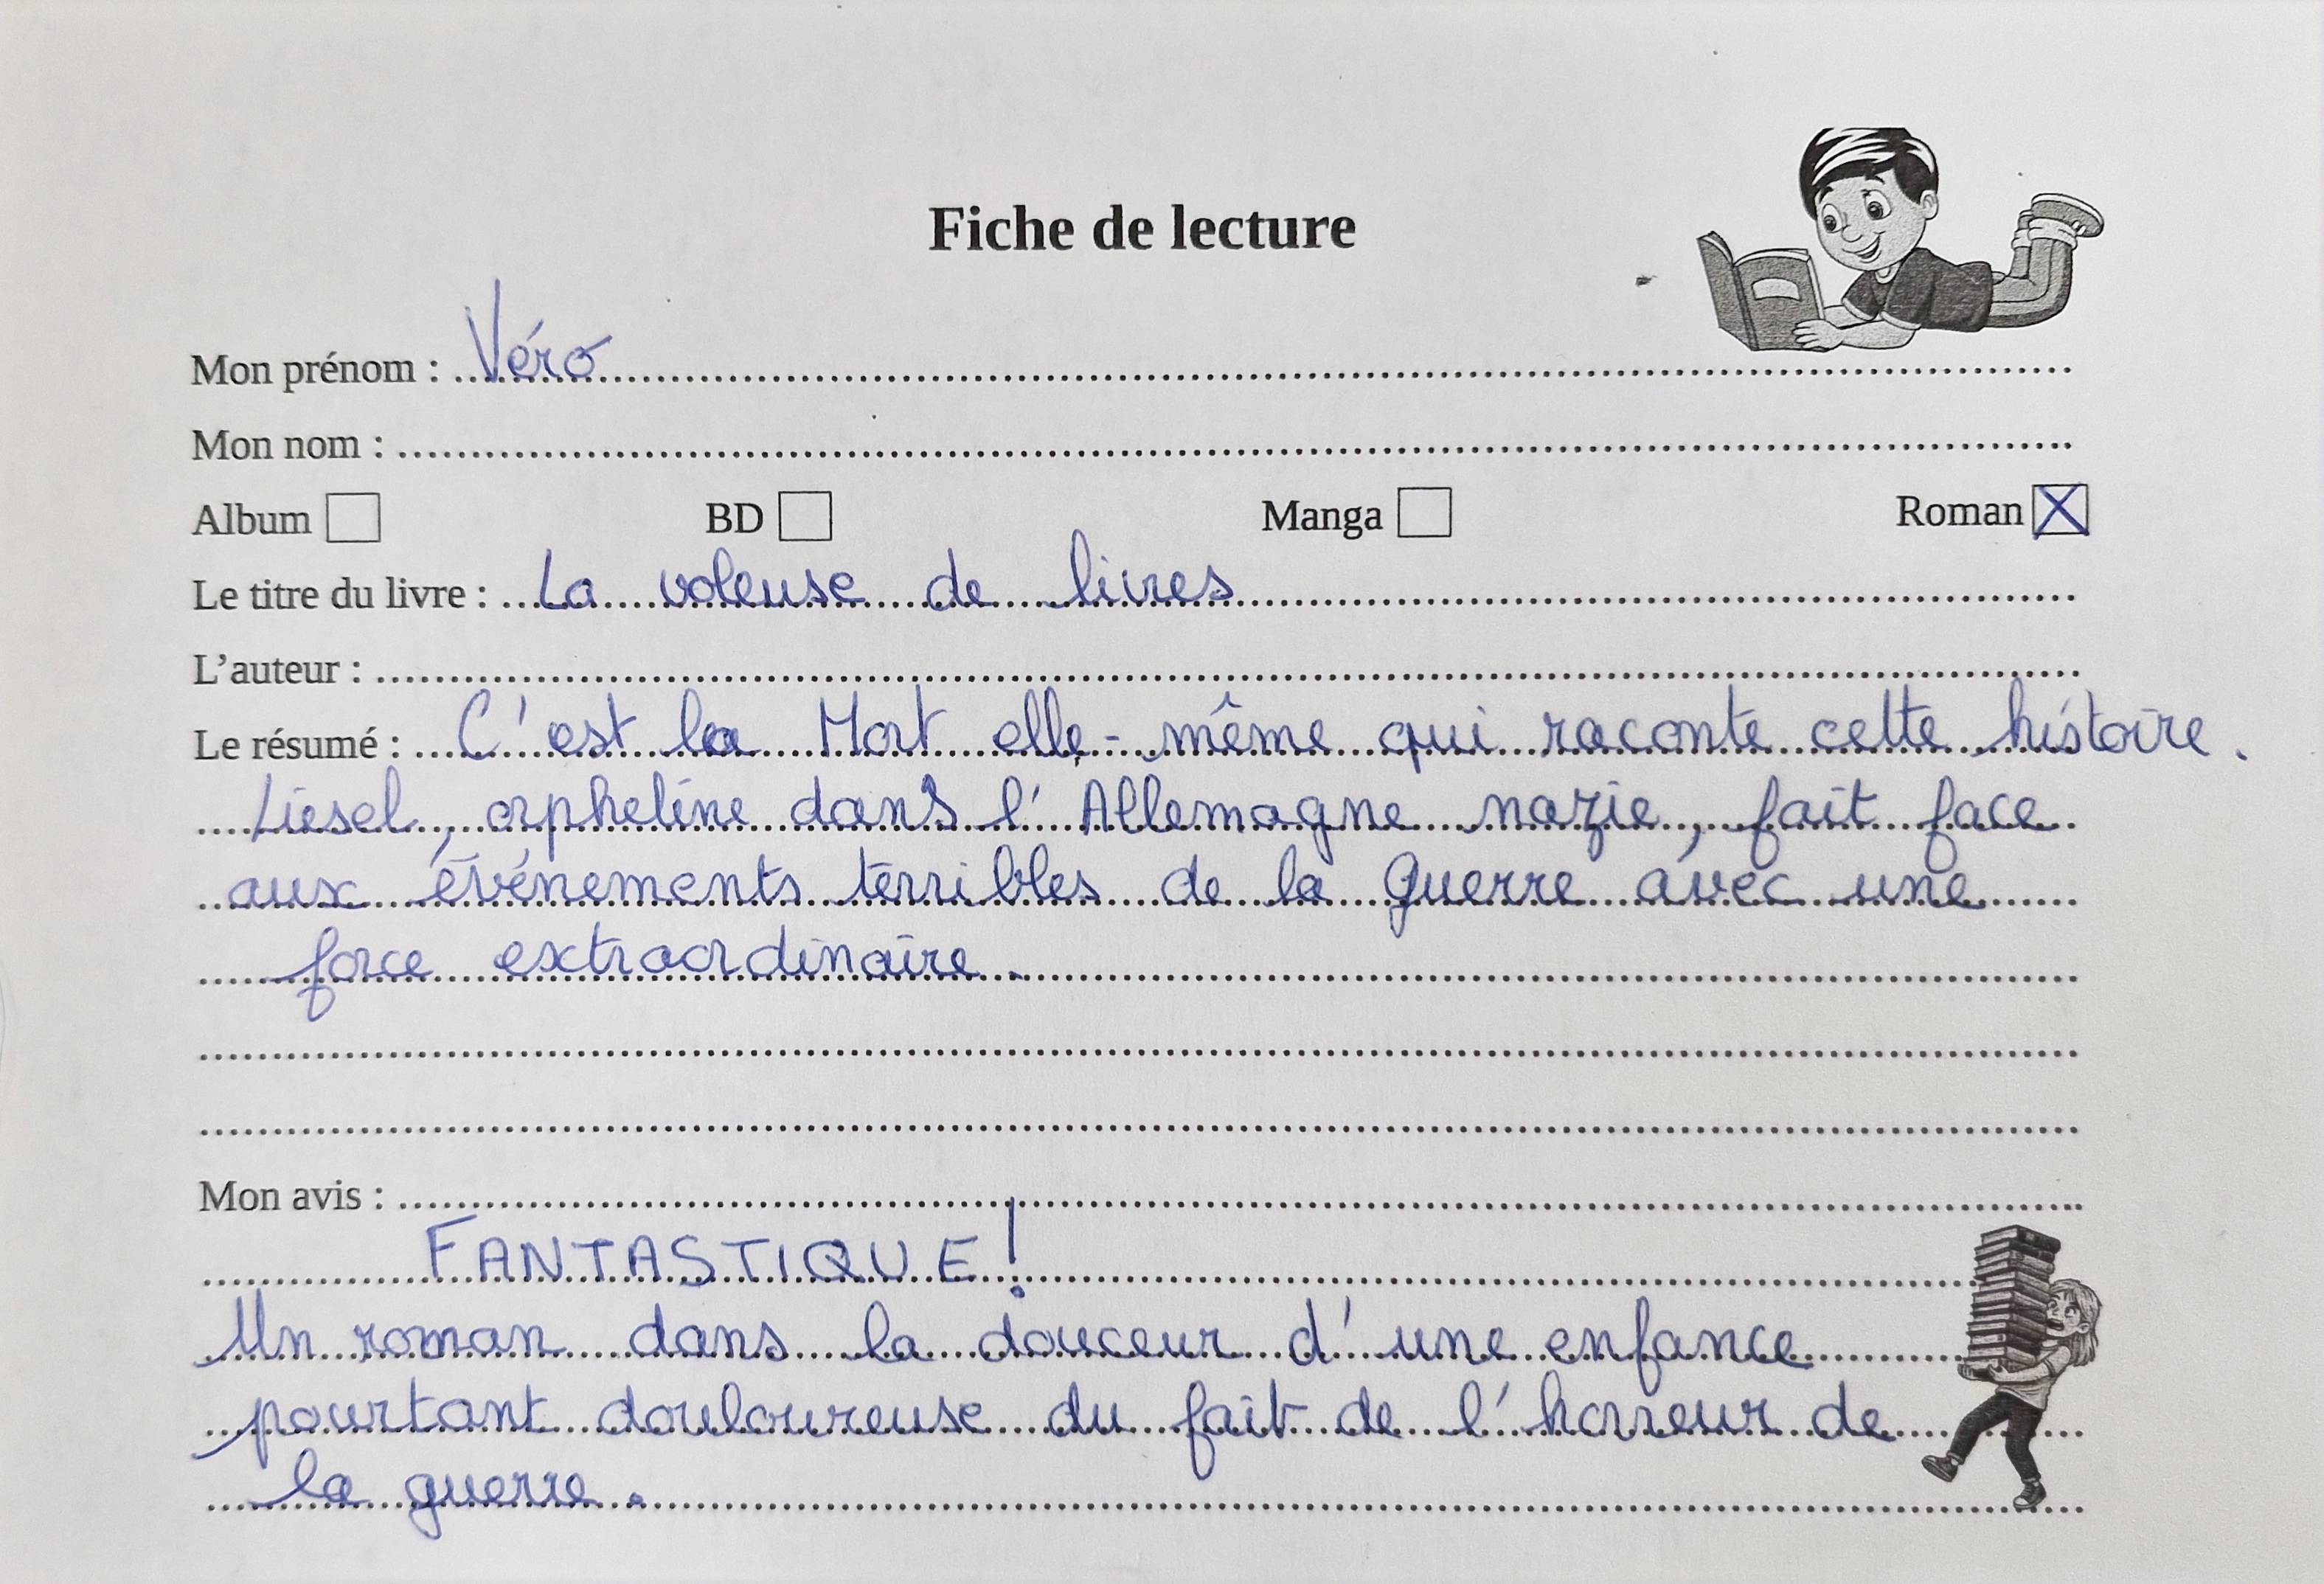 Fiche de lecture
Mon prénom : Véro
Mon nom :
Album BD Manga Roman X
Le titre du livre : La voleuse de livres
L'auteur :
Le résumé : C'est la Mort elle-même qui raconte cette histoire.
Liesel, orpheline dans l'Allemagne nazie, fait face
aux événements terribles de la guerre avec une
force extraordinaire.
Mon avis :
FANTASTIQUE !
Un roman dans la douceur d'une enfance
pourtant douloureuse du fait de l'horreur de
la guerre.